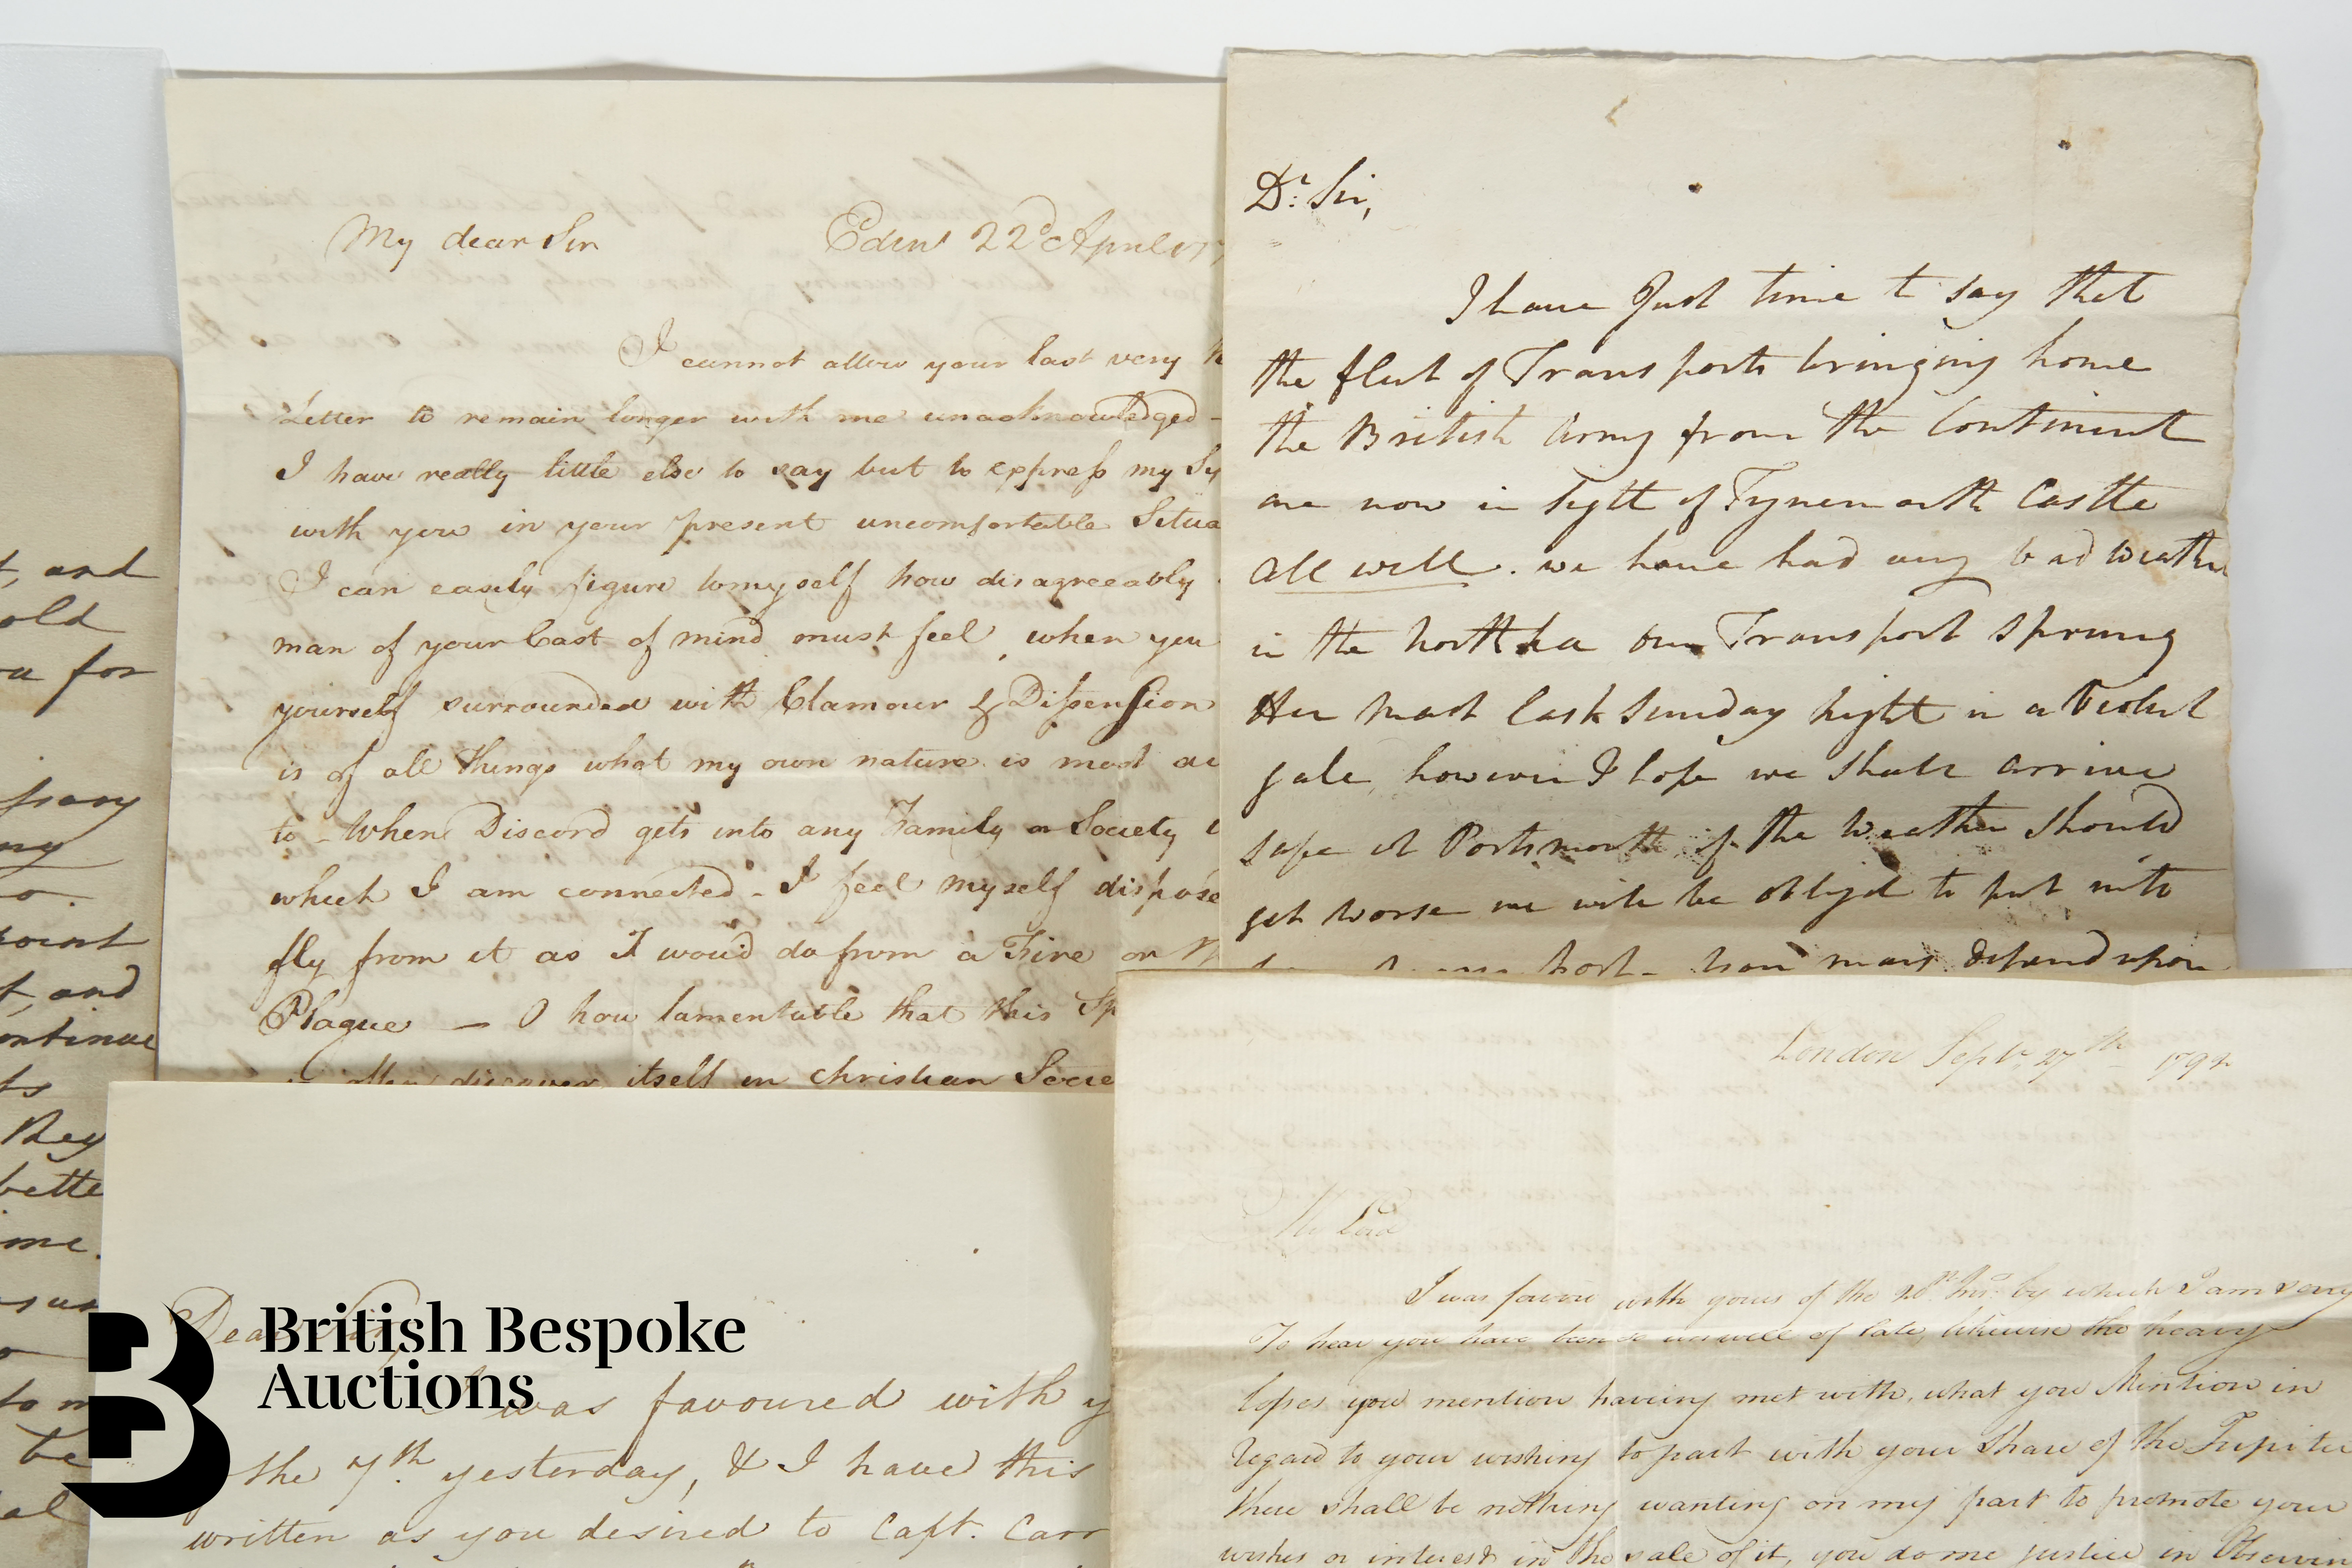 t, and
old
u for
my
o.
point
t, and
ontinue
ts
They
bette
me.
to m
be
al
My dear Sir Edinr 22d April 17
I cannot allow your last very
Letter to remain longer with me unacknowledged -
I have really little else to say but to express my Sy
with you in your present uncomfortable Situa
I can easily figure to myself how disagreeably
man of your Cast of mind must feel, when you
yourself surrounded with Clamour & Dissension
is of all things what my own nature is most av
to - When Discord gets into any Family or Society
which I am connected - I feel myself dispose
fly from it as I wou'd do from a Fire or
Plague — O how lamentable that this Sp
often discover itself in christian Socie
Dr. Sir,
I have Just time to say that
the fleet of Transports bringing home
the British Army from the Continent
are now in Sight of Tynemouth Castle
All well. we have had very bad weather
in the North Sea our Transport Sprung
Her Mast last Sunday Night in a Violent
gale, however I hope we shall arrive
safe at Portsmouth if the Weather should
get worse we will be oblig'd to put into
port - you may depend upon
Dear Sir,
I was favoured with y
the 7th. yesterday, & I have this
written as you desired to Capt. Carr
London Septr. 27th - 1792
My Lord
I was favour'd with yours of the 20th Inst. by which I am very
To hear you have been so unwell of late, likewise the heavy
losses you mention having met with, what you Mention in
regard to your wishing to part with your Share of the Jupiter
there shall be nothing wanting on my part to promote your
wishes or interest in the sale of it, you do me justice in
British Bespoke
Auctions